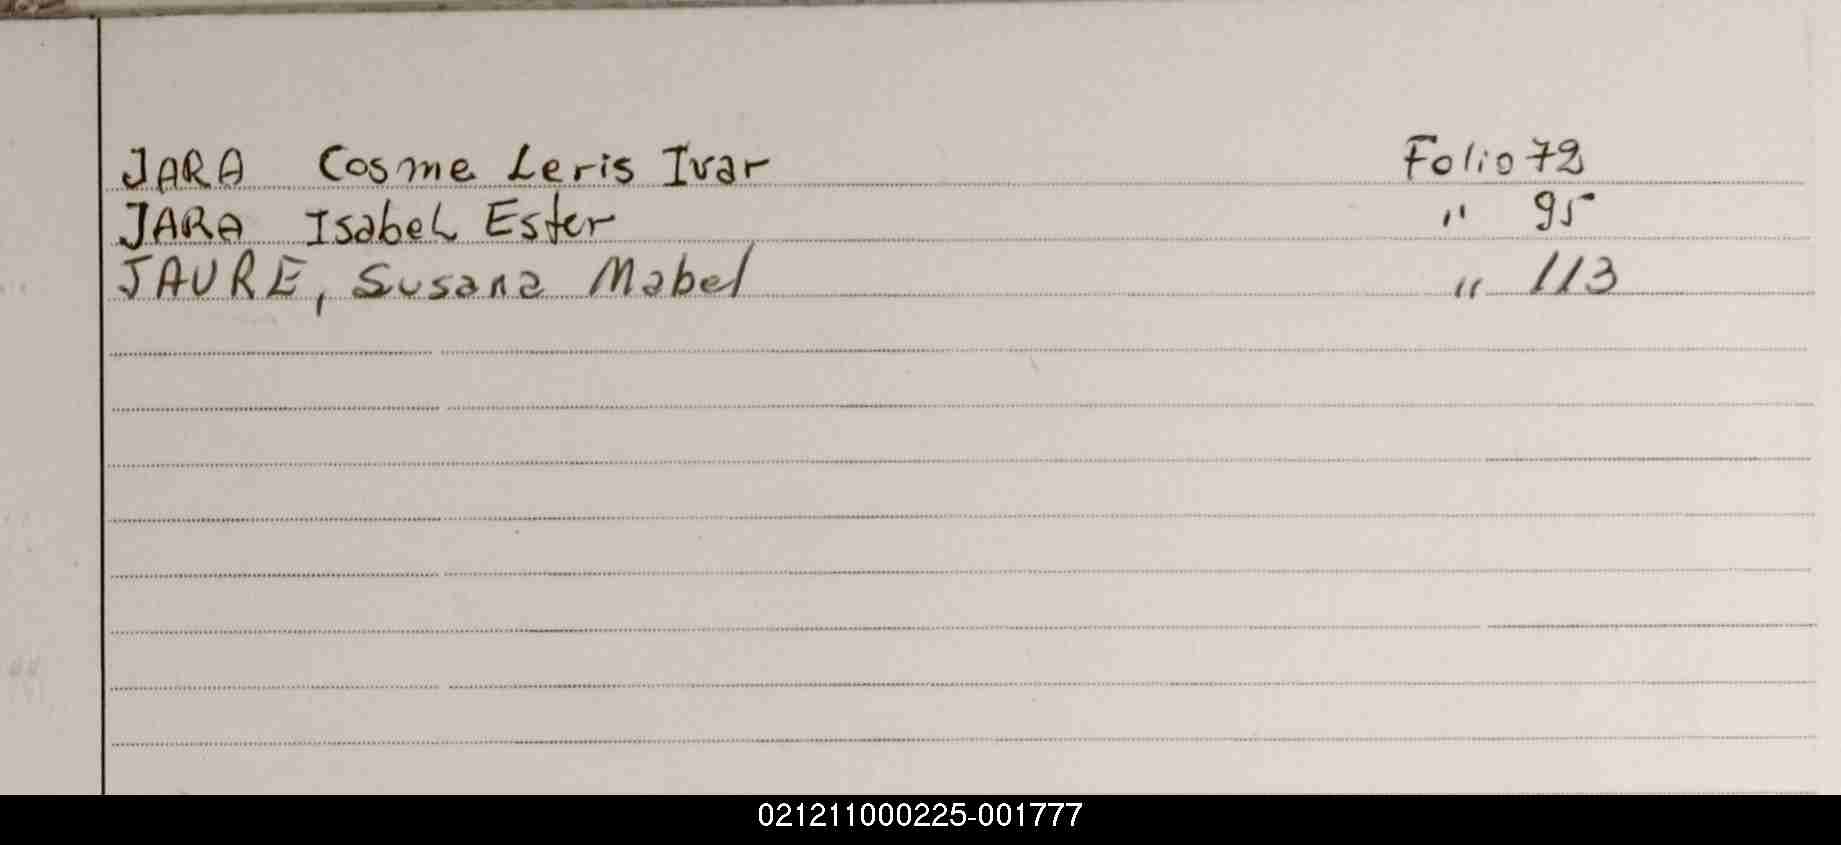 JARA Cosme Leris Ivar Folio 72
JARA Isabel Ester " 95
JAURE, Susana Mabel " 113
021211000225-001777